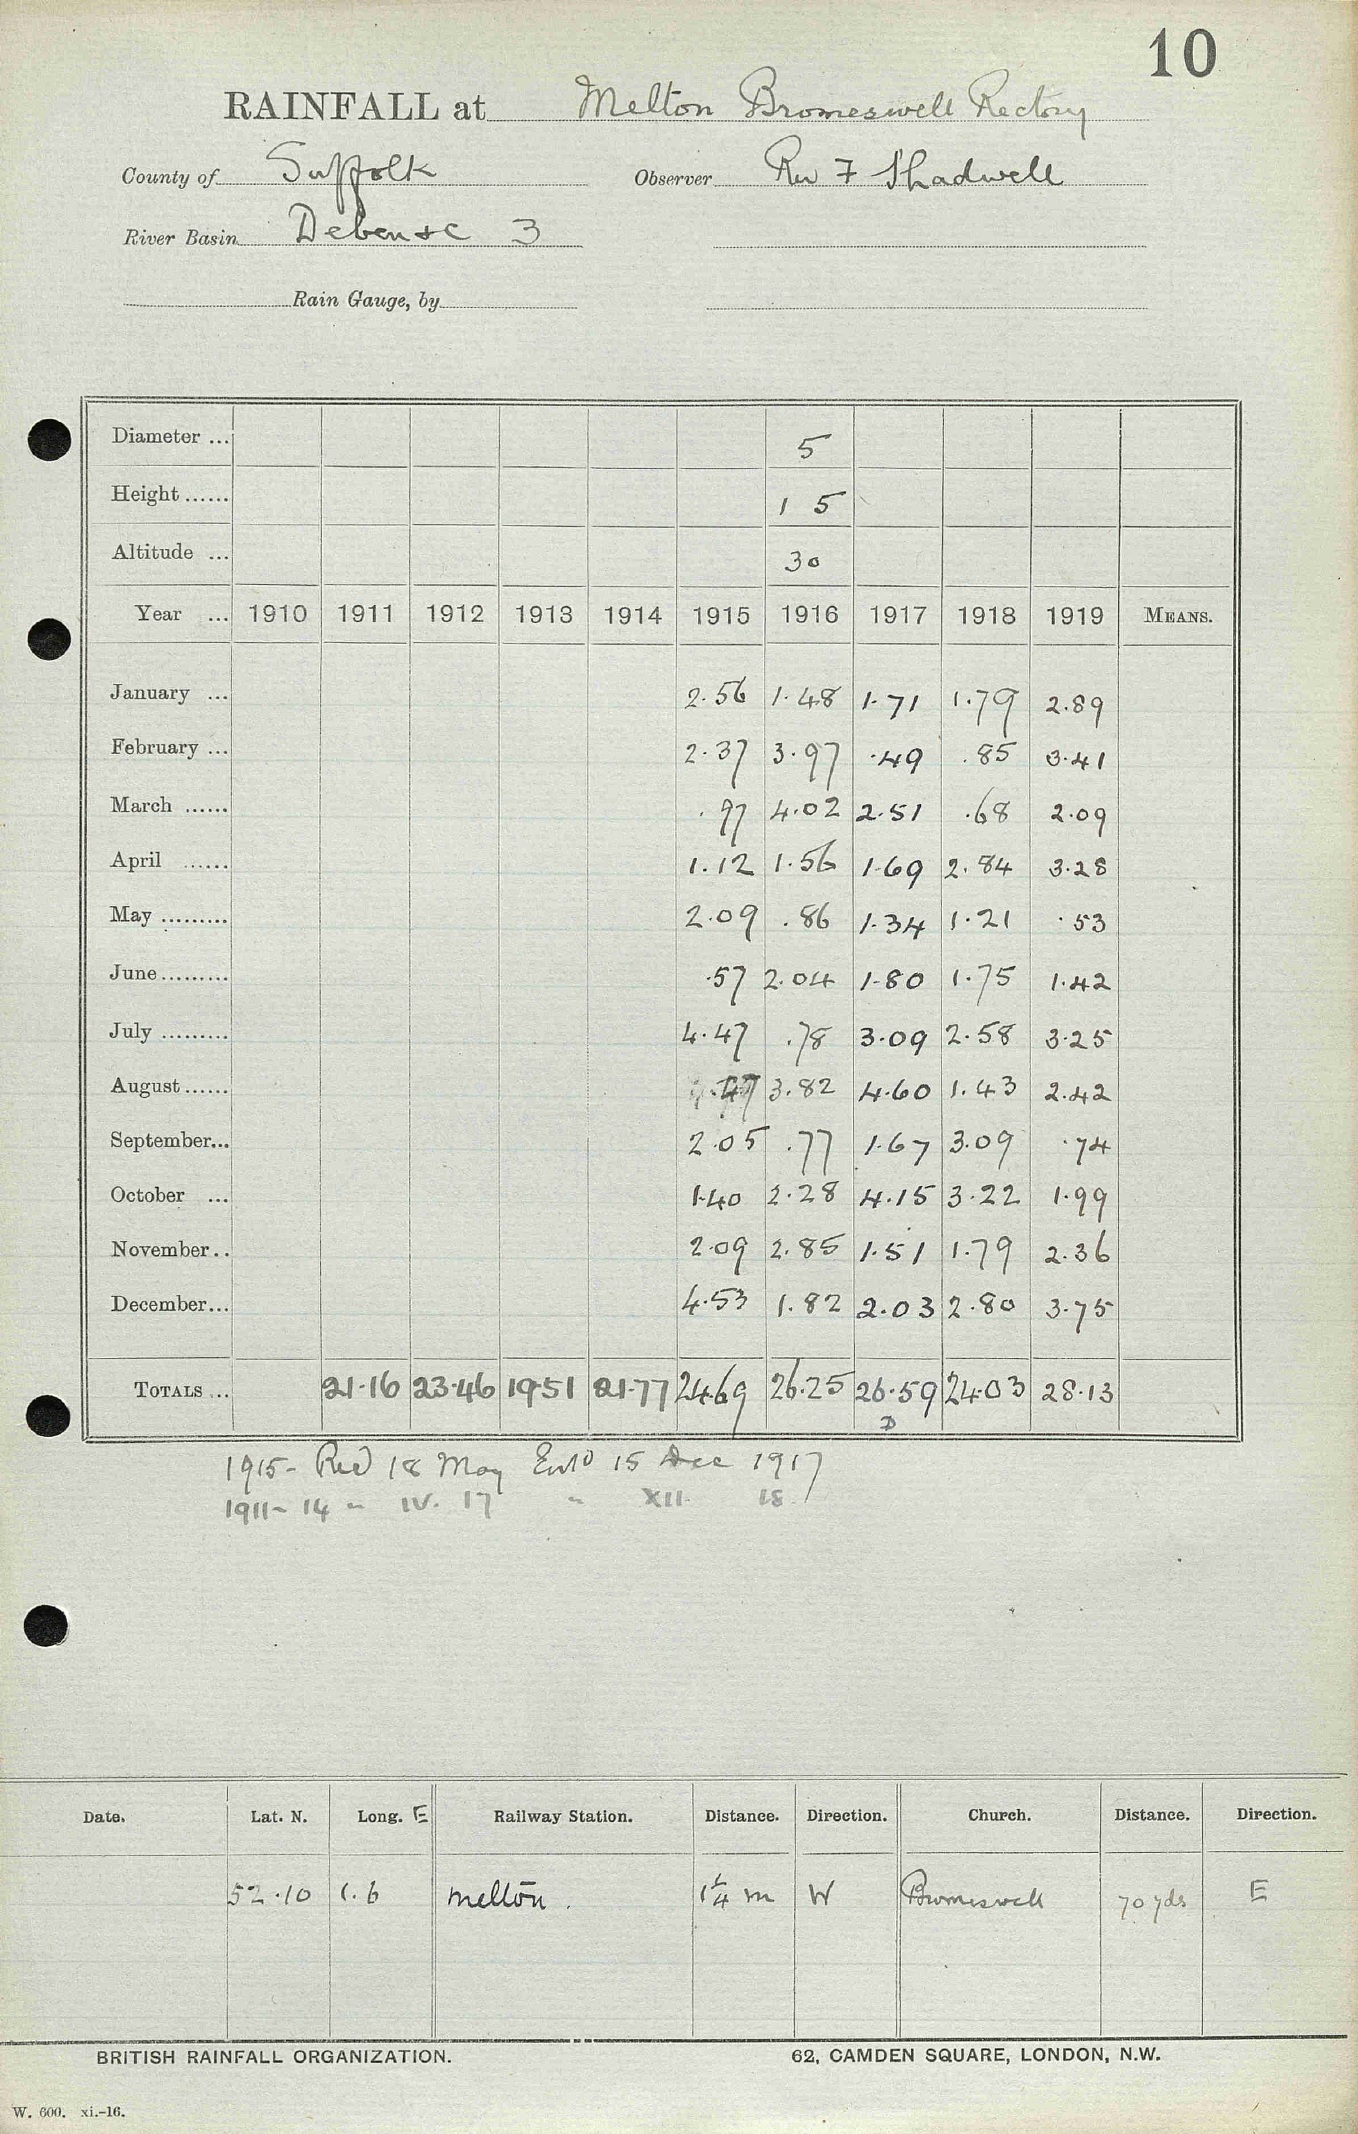 10
RAINFALL at Melton Bromeswell Rectory
County of Suffolk Observer Rev F Shadwell
River Basin Deben &c 3
Rain Gauge, by
Diameter ... 5
Height ...... 1 5
Altitude ... 30
Year ... 1910 1911 1912 1913 1914 1915 1916 1917 1918 1919 MEANS.
January ... 2.56 1.48 1.71 1.79 2.89
February ... 2.37 3.97 .49 .85 3.41
March ...... .97 4.02 2.51 .68 2.09
April ...... 1.12 1.56 1.69 2.84 3.28
May ......... 2.09 .86 1.34 1.21 .53
June ......... .57 2.04 1.80 1.75 1.42
July ......... 4.47 .78 3.09 2.58 3.25
August ...... .47 3.82 4.60 1.43 2.42
September... 2.05 .77 1.67 3.09 .74
October ... 1.40 2.28 4.15 3.22 1.99
November .. 2.09 2.85 1.51 1.79 2.36
December... 4.53 1.82 2.03 2.80 3.75
TOTALS ... 21.16 23.46 19.51 21.77 24.69 26.25 26.59 24.03 28.13
D
1915- Recd 18 May Entd 15 Dec 1917
1911-14 " IV. 17 " XII. 18
Date. Lat. N. Long. E Railway Station. Distance. Direction. Church. Distance. Direction.
52.10 1.6 Melton. 1¼ m W Bromeswell 70 yds E
BRITISH RAINFALL ORGANIZATION. 62, CAMDEN SQUARE, LONDON, N.W.
W. 600. xi.-16.